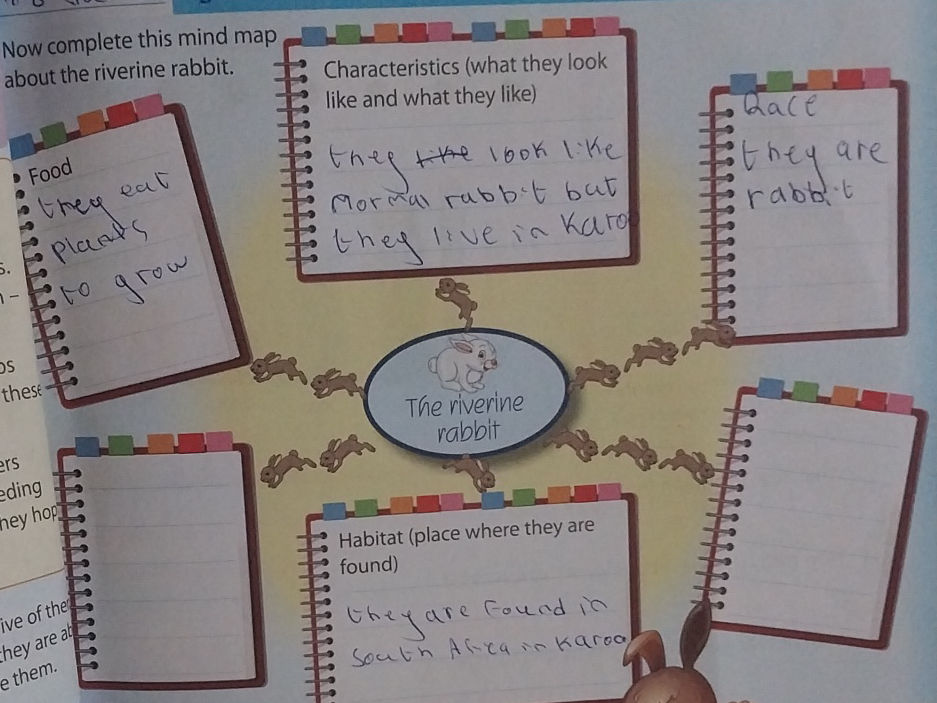 Now complete this mind map
about the riverine rabbit.
Food
they eat
plants
to grow
Characteristics (what they look
like and what they like)
they like look like
Normal rabbit but
they live in Karoo
Race
they are
rabbit
The riverine
rabbit
Habitat (place where they are
found)
they are Found in
South Africa in Karoo
s.
these
ers
eding
hey hop
ive of the
they are
e them.